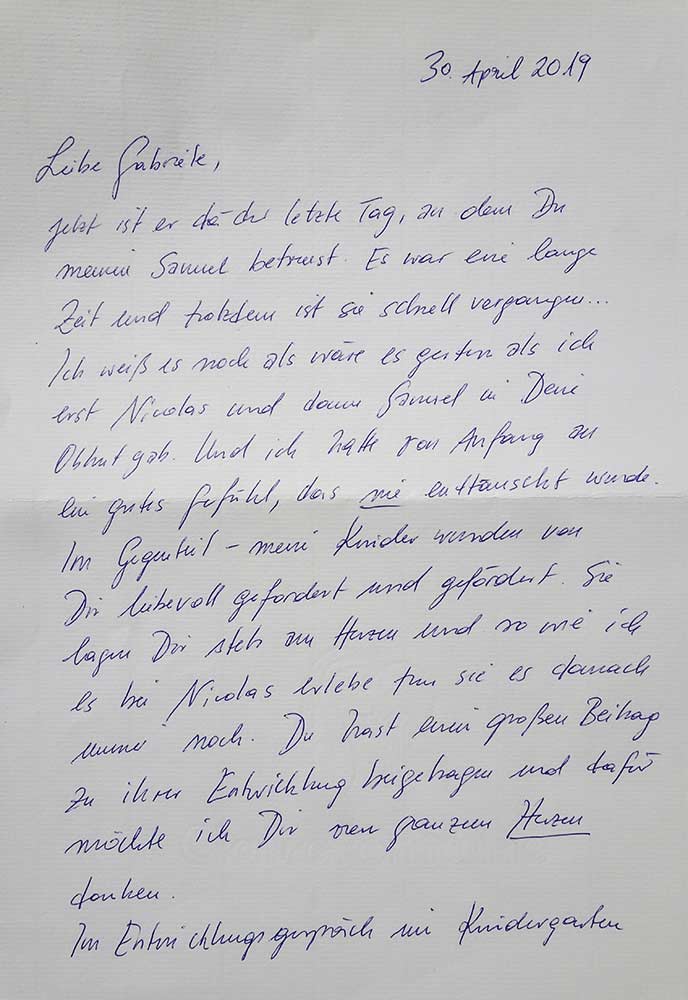 30. April 2019
Liebe Gabriele,
jetzt ist er da der letzte Tag, an dem Du
meinen Samuel betreust. Es war eine lange
Zeit und trotzdem ist sie schnell vergangen...
Ich weiß es noch als wäre es gestern als ich
erst Nicolas und dann Samuel in Deine
Obhut gab. Und ich hatte von Anfang an
ein gutes Gefühl, das nie enttäuscht wurde.
Im Gegenteil – meine Kinder wurden von
Dir liebevoll gefordert und gefördert. Sie
lagen Dir stets am Herzen und so wie ich
es bei Nicolas erlebe tun sie es danach
immer noch. Du hast einen großen Beitrag
zu ihrer Entwicklung beigetragen und dafür
möchte ich Dir von ganzem Herzen
danken.
Im Entwicklungsgespräch im Kindergarten